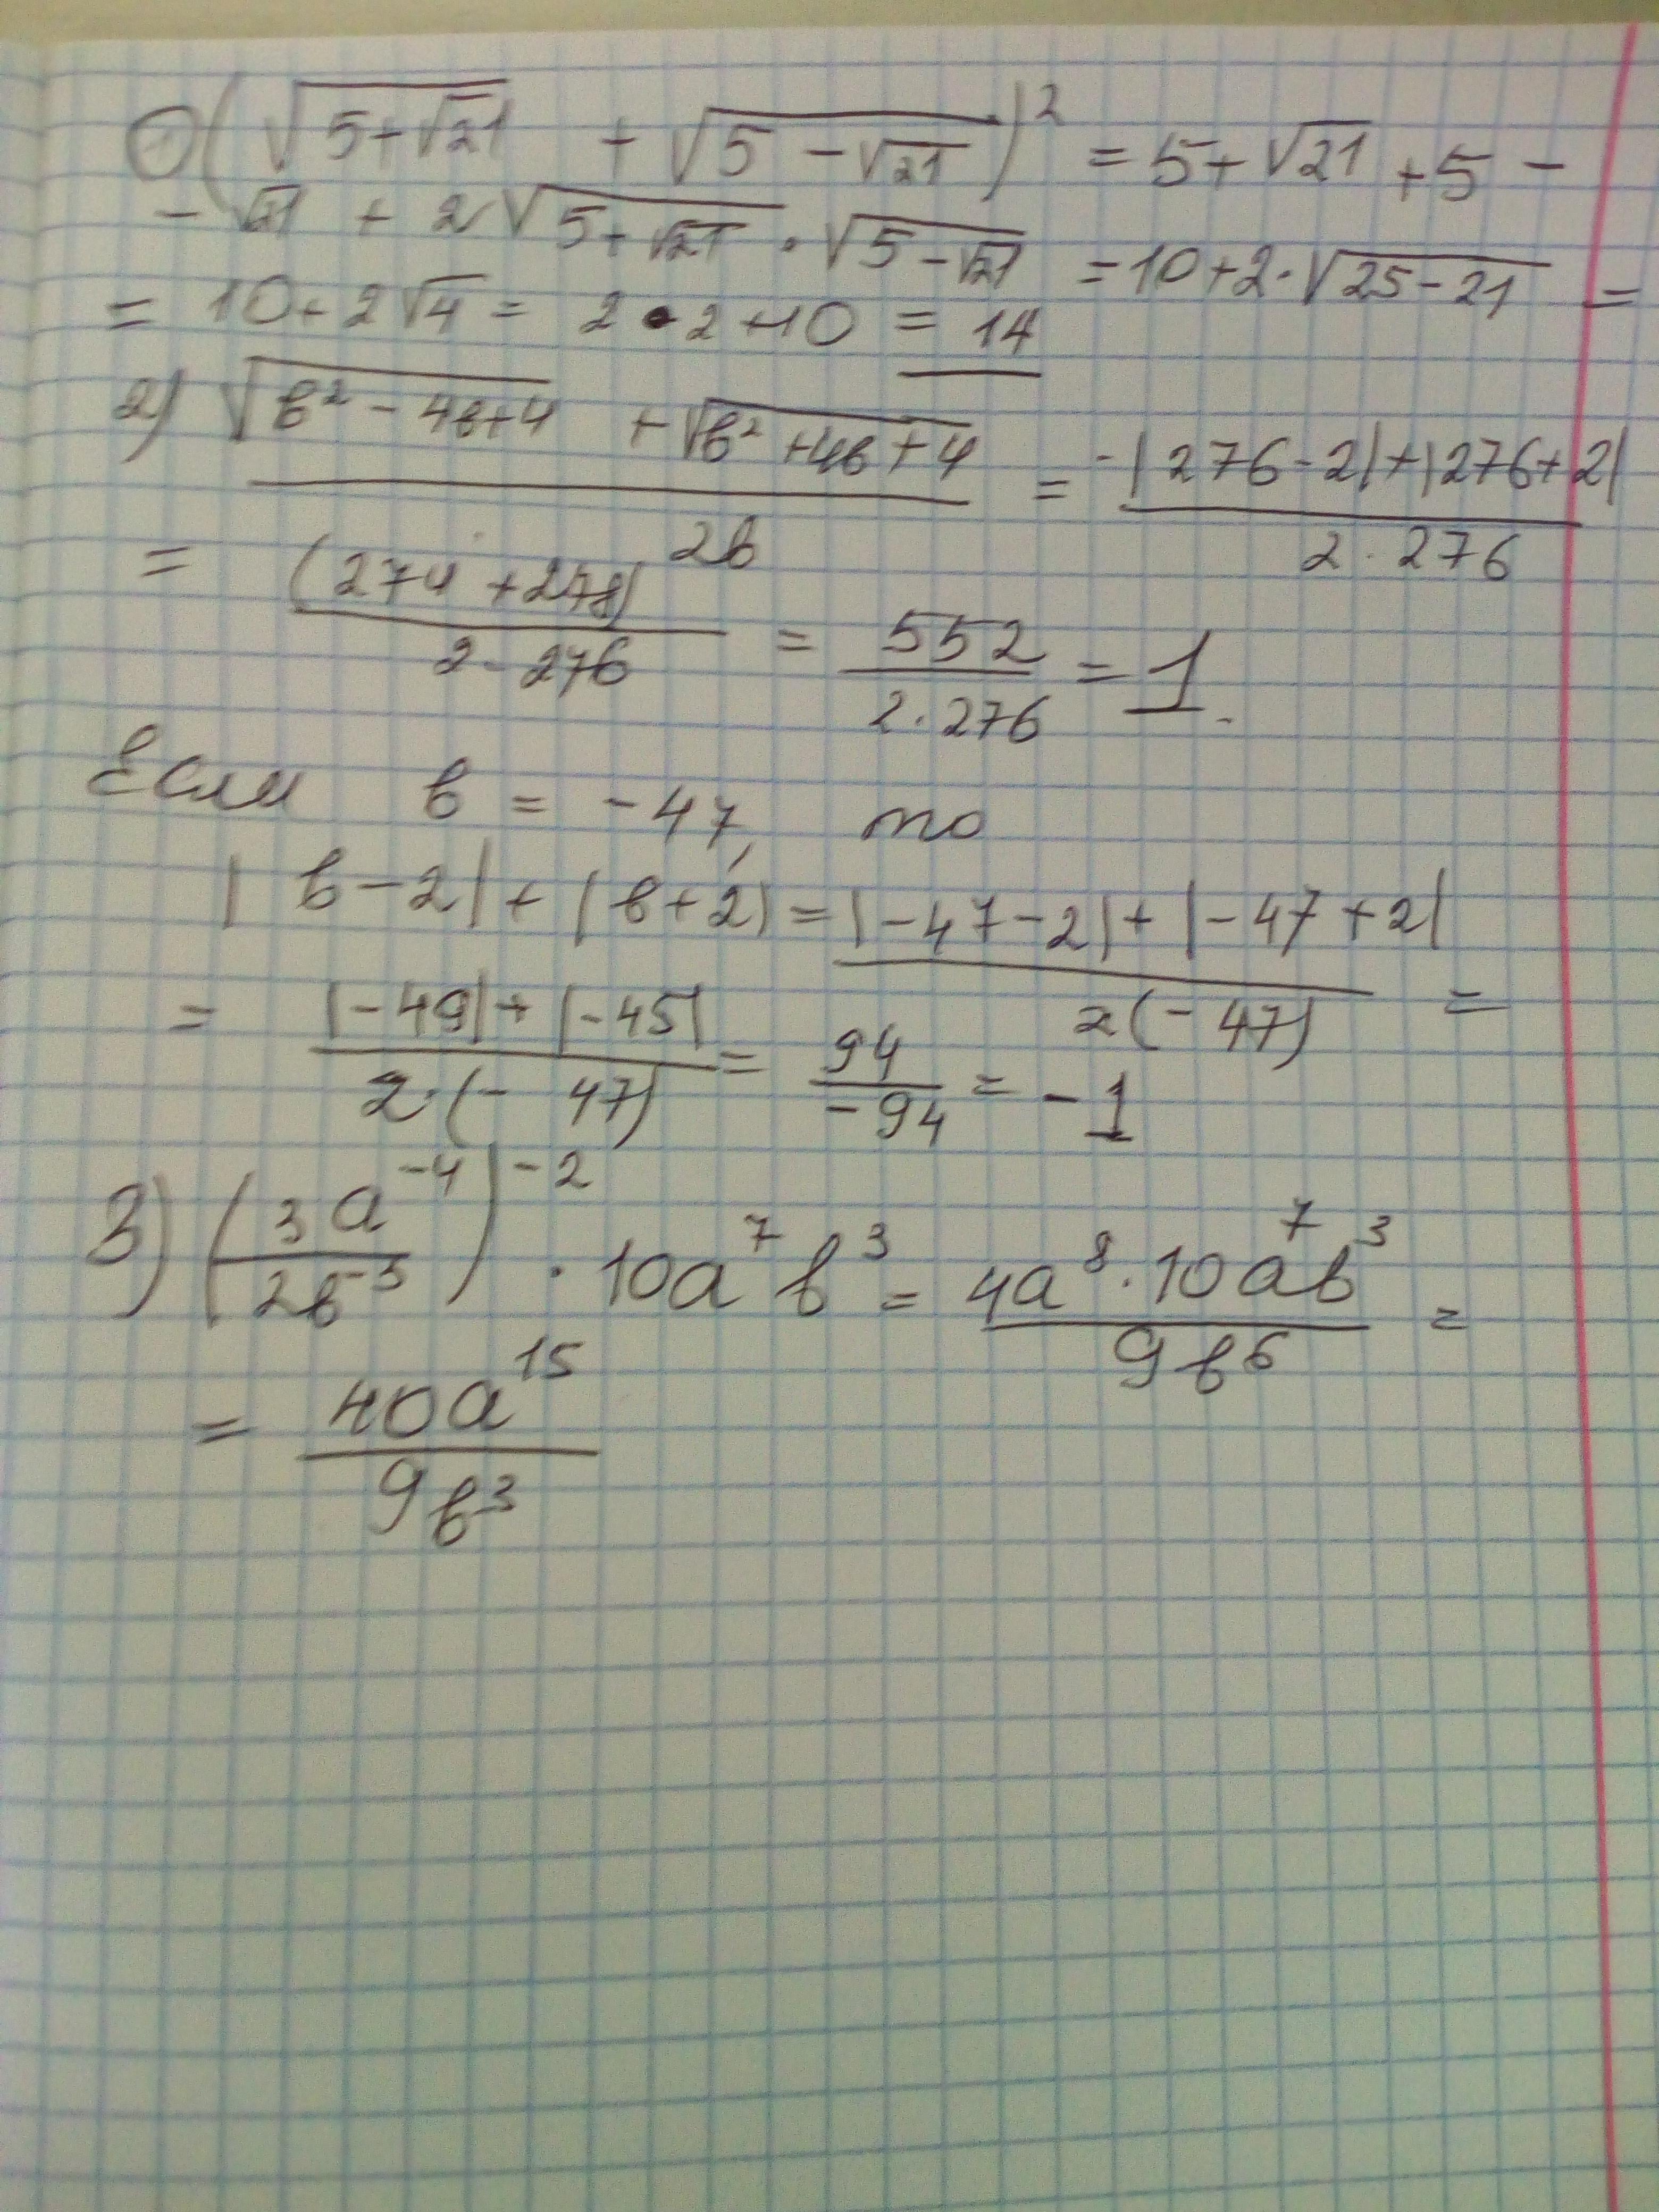 ① (√(5+√21) + √(5-√21))² = 5+√21 +5 -
- √21 + 2√(5+√21) · √(5-√21) = 10+2·√(25-21) =
= 10+2√4 = 2·2+10 = 14
2) (√(в²-4в+4) + √(в²+4в+4)) / 2в = (-|276-2|+|276+2|) / (2·276)
= (274+278) / (2·276) = 552 / (2·276) = 1.
Если в = -47, то
|в-2|+|в+2| = (|-47-2|+|-47+2|) / (2(-47)) =
= (|-49|+|-45|) / (2·(-47)) = 94 / (-94) = -1
3) (3a⁻⁴ / 2в⁻³)⁻² · 10a⁷в³ = (4a⁸·10a⁷в³) / (9в⁶) =
= 40a¹⁵ / 9в³